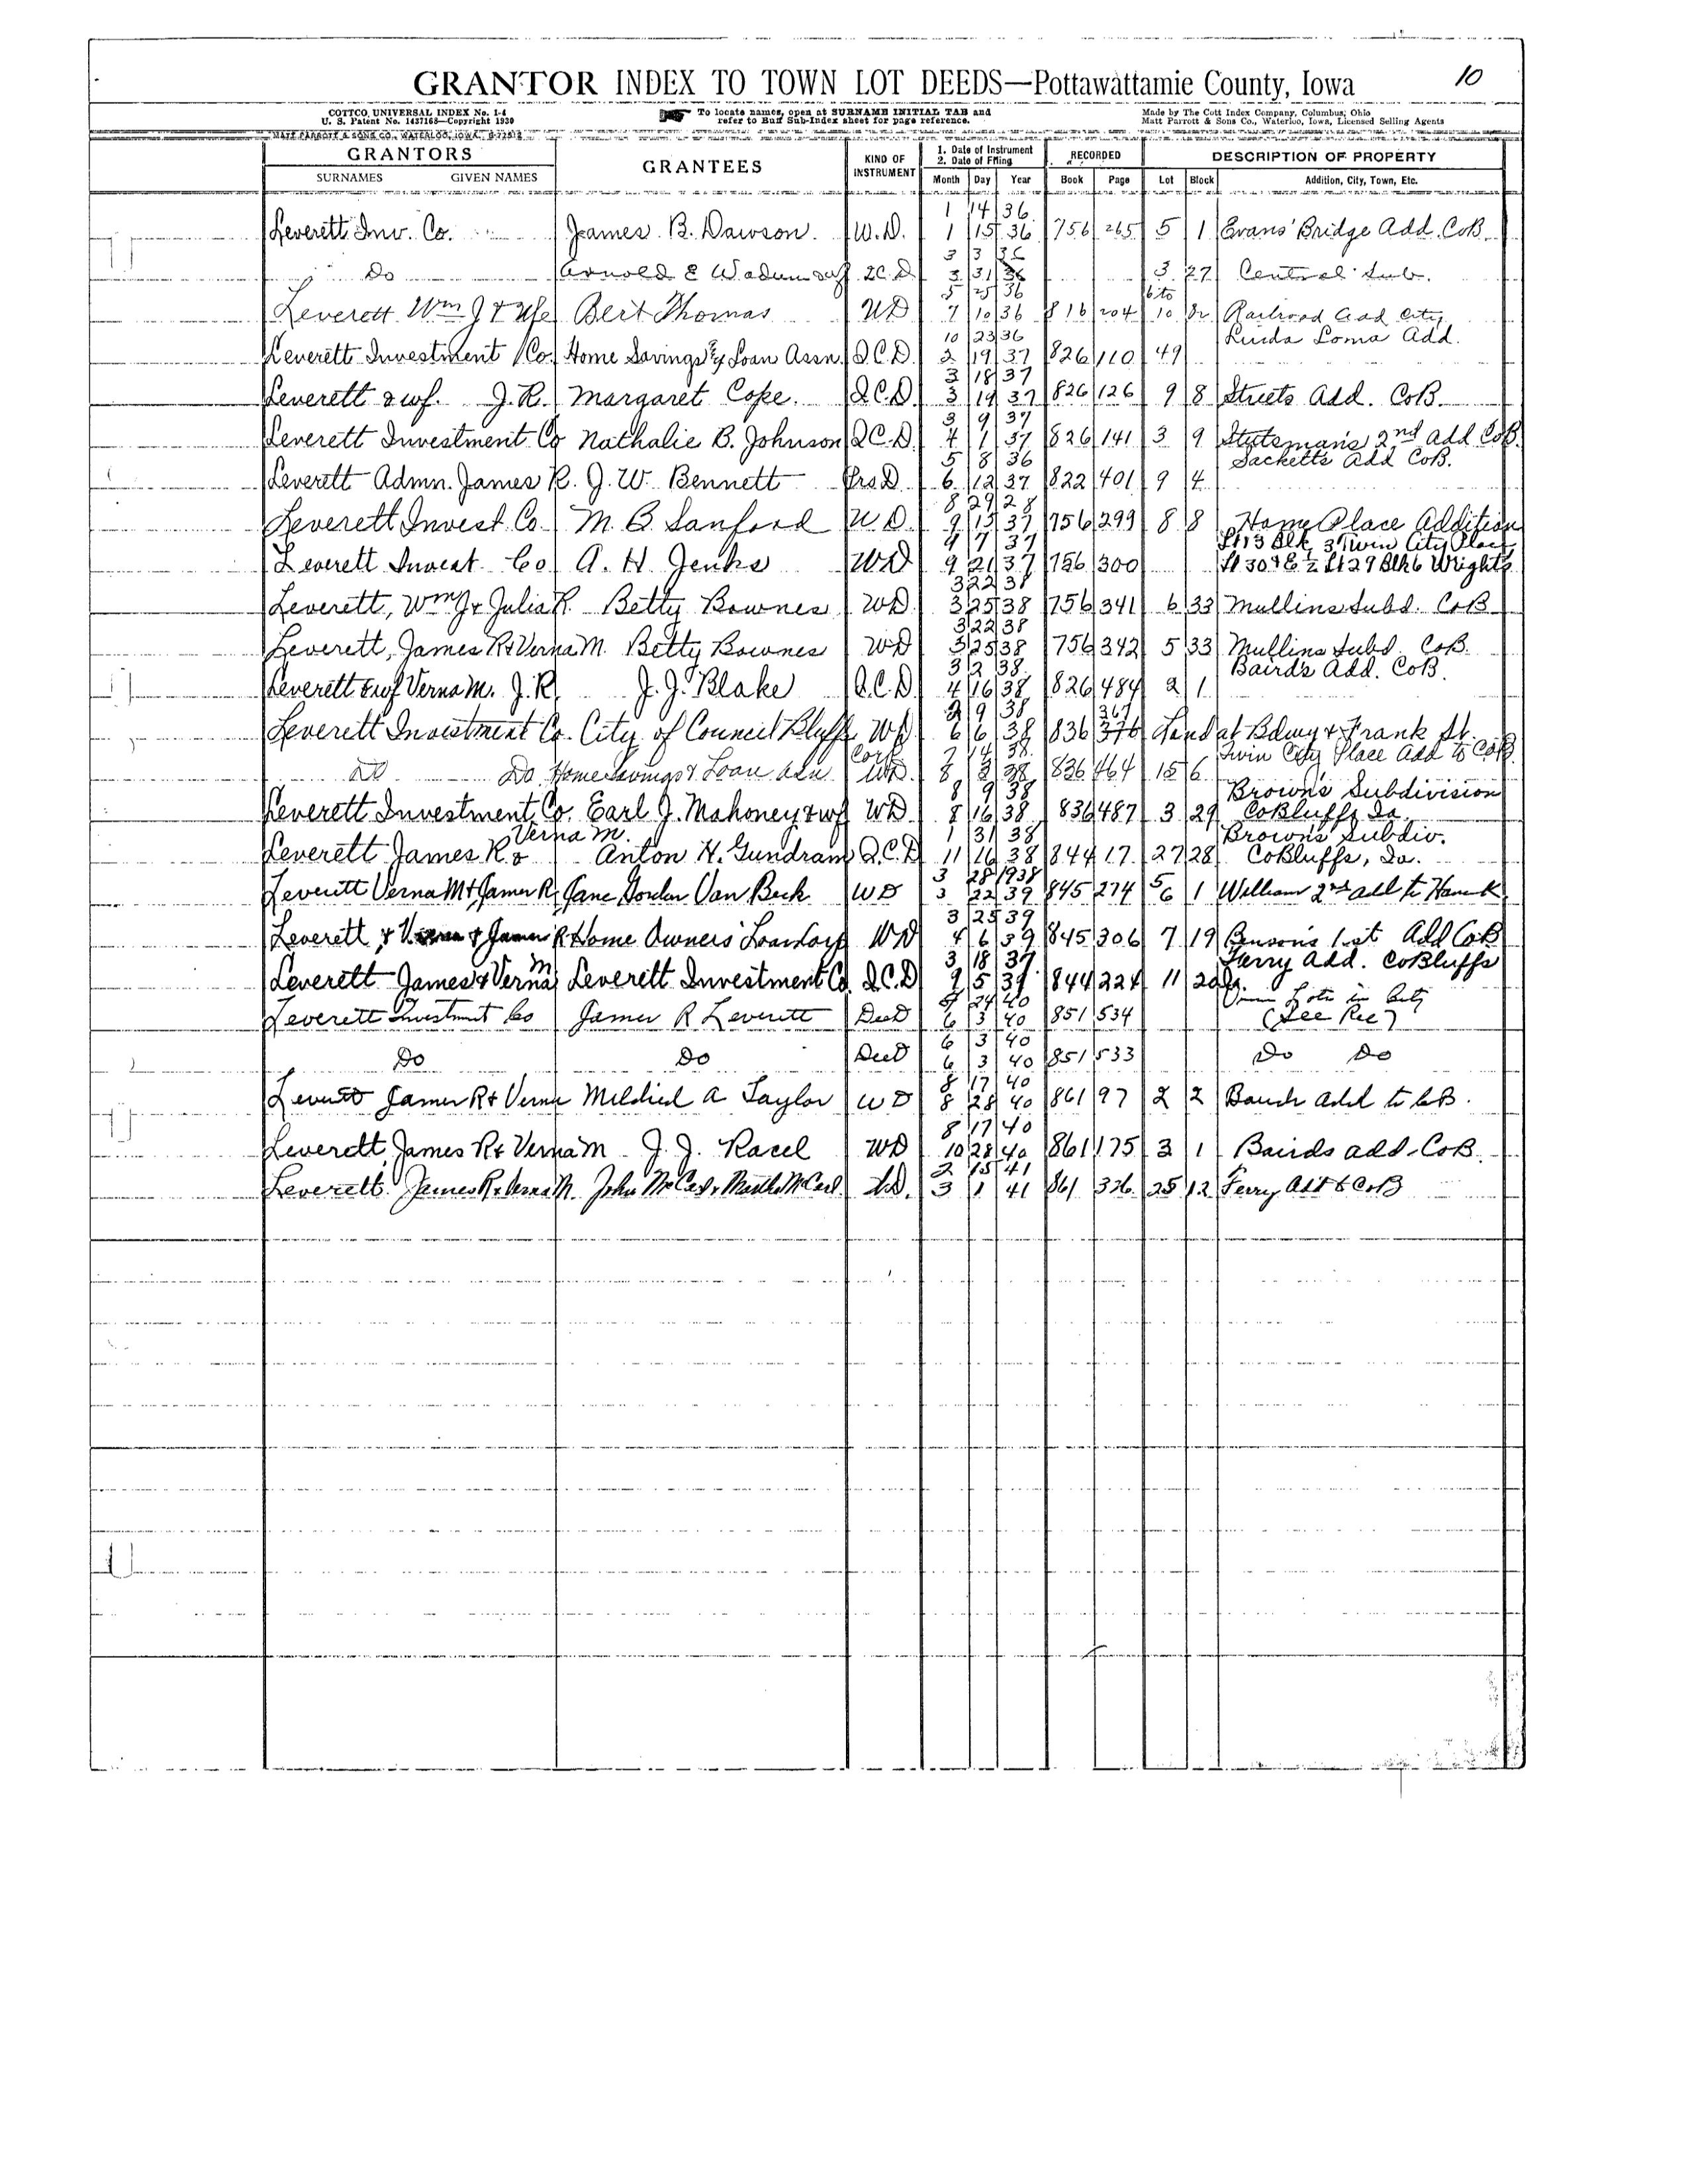 10
GRANTOR INDEX TO TOWN LOT DEEDS—Pottawattamie County, Iowa
COTTCO UNIVERSAL INDEX No. 1-4
U. S. Patent No. 1437168—Copyright 1930
MATT PARROTT & SONS CO., WATERLOO, IOWA
To locate names, open at SURNAME INITIAL TAB and
refer to Buff Sub-Index sheet for page reference.
Made by The Cott Index Company, Columbus, Ohio
Matt Parrott & Sons Co., Waterloo, Iowa, Licensed Selling Agents
GRANTORS GRANTEES KIND OF INSTRUMENT 1. Date of Instrument 2. Date of Filing RECORDED DESCRIPTION OF PROPERTY
SURNAMES GIVEN NAMES Month Day Year Book Page Lot Block Addition, City, Town, Etc.
1 14 36
Leverett Inv. Co. James B. Dawson W.D. 1 15 36 756 265 5 1 Evans' Bridge Add. CoB
3 3 36
Do Arnold E 2C.D 3 31 36 3 27 Central Sub.
5 25 36 6 to
Leverett Wm J & Wfe Bert Thomas WD 7 10 36 816 204 10 Railroad add City
10 23 36 Linda Loma Add.
Leverett Investment Co. Home Savings & Loan Assn. Q.C.D. 2 19 37 826 110 49
3 18 37
Leverett & wf. J.R. Margaret Cope. Q.C.D. 3 19 37 826 126 9 8 Streets Add. CoB
3 9 37
Leverett Investment Co Nathalie B. Johnson Q.C.D. 4 1 37 826 141 3 9 Stutsman's 2nd Add CoB.
5 8 36 Sackett's Add CoB.
Leverett Admn. James R. J. W. Bennett D 6 12 37 822 401 9 4
8 29 28
Leverett Invest Co M. B. Sanford W D. 9 15 37 756 299 8 8 Home Place Addition
9 7 37 Lt 13 Blk 3 Twin City Place
Leverett Invest Co A. H. Jenks WD 9 21 37 756 300 Lt 30 & E ½ Lt 29 Blk 6 Wrights
3 22 38
Leverett, Wm J & Julia R. Betty Bownes WD 3 25 38 756 341 6 33 Mullins Subd. CoB
3 22 38
Leverett, James R & Verna M. Betty Bownes WD 3 25 38 756 342 5 33 Mullins Subd. CoB
3 2 38 Baird's Add. CoB.
Leverett & wf Verna M. J. R. J. J. Blake Q.C.D. 4 16 38 826 484 2 1
2 9 38 367
Leverett Investment Co. City of Council Bluffs WD 6 6 38 836 376 Land at Bdwy & Frank St.
Corp 7 14 38 Twin City Place Add to CoB.
Do Do Home Savings & Loan Assn WD. 8 2 38 836 464 15 6
8 9 38 Brown's Subdivision
Leverett Investment Co. Earl J. Mahoney & wf WD 8 16 38 836 487 3 29 CoBluffs Ia.
Verna M. 1 31 38 Brown's Subdiv.
Leverett James R. & Anton H. Gundram Q.C.D 11 16 38 844 17 27 28 CoBluffs, Ia.
3 28 1938 5
Leverett Verna M & James R. Jane Gorden Van Beck WD 3 22 39 845 274 6 1 William 2nd add to
3 25 39
Leverett & Verna & James R Home Owners' Loan Corp WD 4 6 39 845 306 7 19 Benson's 1st Add CoB
M 3 18 37 Ferry Add. CoBluffs
Leverett James & Verna Leverett Investment Co. Q.C.D 9 5 39 844 224 11 20
5 24 40 Lots in City
Leverett Investment Co James R Leverett Deed 6 3 40 851 534 (See Rec)
6 3 40
Do Do Deed 6 3 40 851 533 Do Do
8 17 40
Leverett James R & Verna Mildred A Taylor WD 8 28 40 861 97 2 2 add to CoB.
8 17 40
Leverett, James R & Verna M J. J. Racel WD 10 28 40 861 175 3 1 Bairds add CoB.
2 15 41
Leverett James R & Verna M. John McCarl & Martha McCarl W.D. 3 1 41 861 326 25 12 Ferry Add to CoB